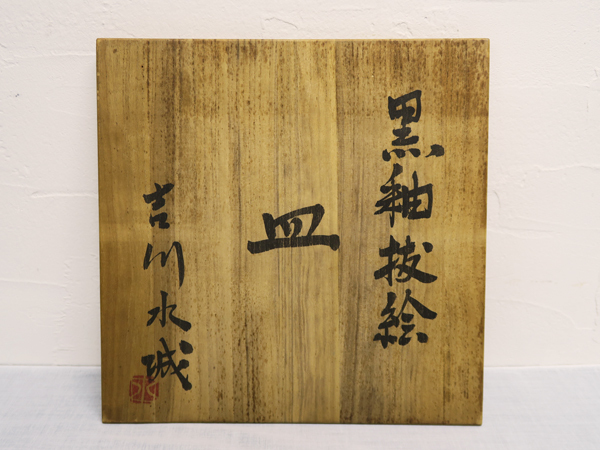 黒釉抜絵
皿
吉川水城